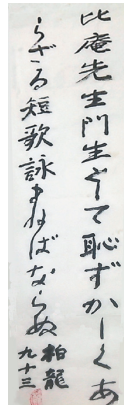 比庵先生門生として恥ずかしくあ
らざる短歌詠まねばならぬ
柏龍
九十三